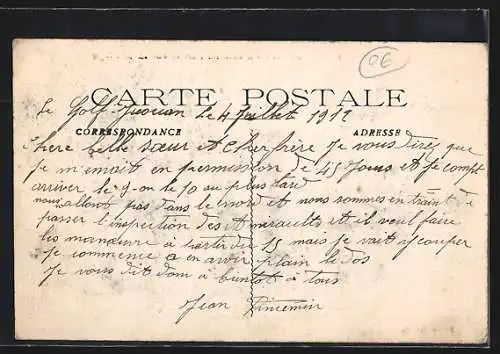 O6
CARTE POSTALE
Le Golf Juouan Le 4 Juillet 1912
CORRESPONDANCE
ADRESSE
Chere belle sœur et Cher frère Je vous direz que
je m'envait en permission de 45 Jours et je compt
arriver le 9 ou le 10 au plus tard
nous allont pas dans le nord et nous sommes en traint de
passer l'inspection des Amiraults et il veul faire
les manœuvre à partir du 15 mais je vait y couper
je commence a en avoir plain le dos
Je vous dit donc à bientot à tous
Jean Pincemin